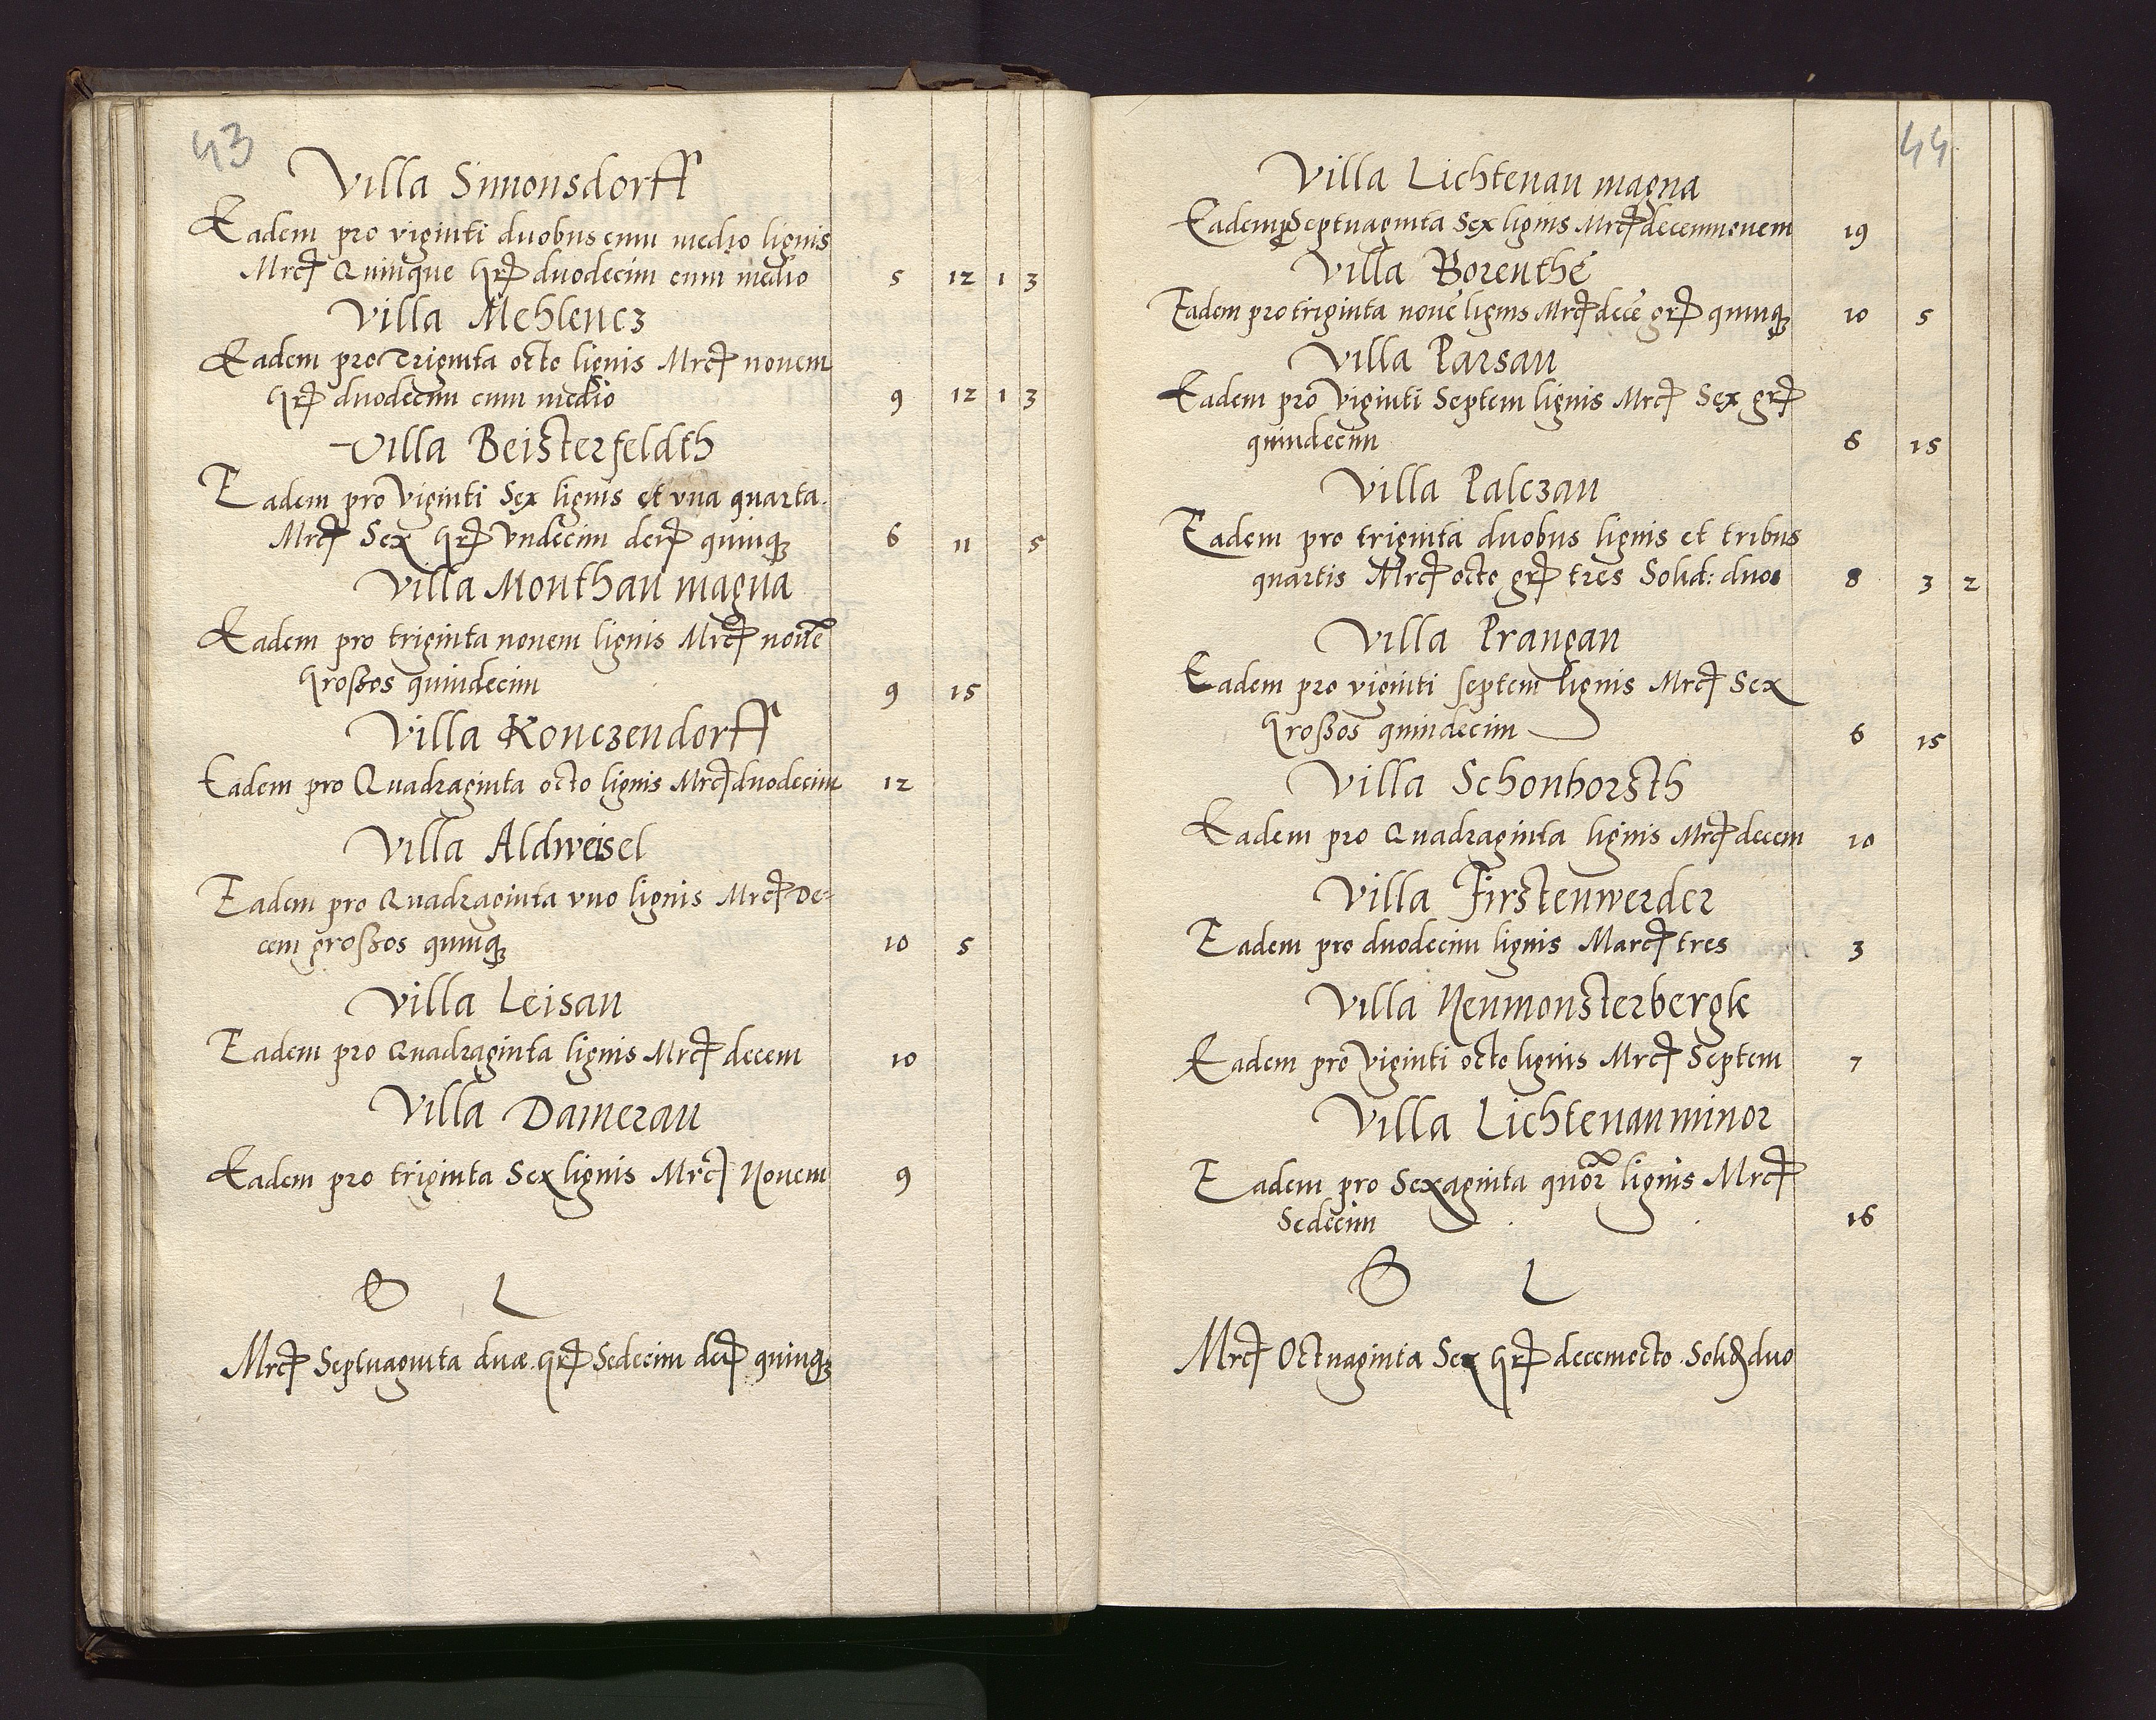 43
Villa Simonsdorff
Eadem pro viginti duobus cum medio lignis
Mrc Quinque Gr duodecim cum medio 5 12 1 3
Villa Mehlencz
Eadem pro Triginta octo lignis Mrc novem
Gr duodecim cum medio 9 12 1 3
Villa Beisterfeldth
Eadem pro Viginti Sex lignis et vna quarta.
Mrc Sex Gr Vndecim den quinq 6 11 5
Villa Monthau magna
Eadem pro triginta novem lignis Mrc nove
Großos quindecim 9 15
Villa Konczendorff
Eadem pro Quadraginta octo lignis Mrc duodecim 12
Villa Aldweisel
Eadem pro Quadraginta vno lignis Mrc De=
cem großos quinq 10 5
Villa Leisau
Eadem pro Quadraginta lignis Mrc decem 10
Villa Damerau
Eadem pro triginta Sex lignis Mrc Novem 9
L
Mrc Septuaginta duæ. Gr Sedecim den quinq
44
Villa Lichtenau magna
Eadem p Septuaginta Sex lignis Mrc decemnovem 19
Villa Borenthe
Eadem pro triginta nove lignis Mrc dece gr quinq 10 5
Villa Parsau
Eadem pro Viginti Septem lignis Mrc Sex gr
quindecim 6 15
Villa Palczau
Eadem pro triginta duobus lignis et tribus
quartis Mrc octo gr tres Solid: duos 8 3 2
Villa Prangau
Eadem pro viginti septem lignis Mrc Sex
Großos quindecim 6 15
Villa Schonhorsth
Eadem pro Quadraginta lignis Mrc decem 10
Villa Firstenwerder
Eadem pro duodecim lignis Marc tres 3
Villa Neumonsterbergk
Eadem pro Viginti octo lignis Mrc Septem 7
Villa Lichtenau minor
Eadem pro Sexaginta quor lignis Mrc
Sedecim 16
L
Mrc Octuaginta Sex Gr decemocto Solid duo